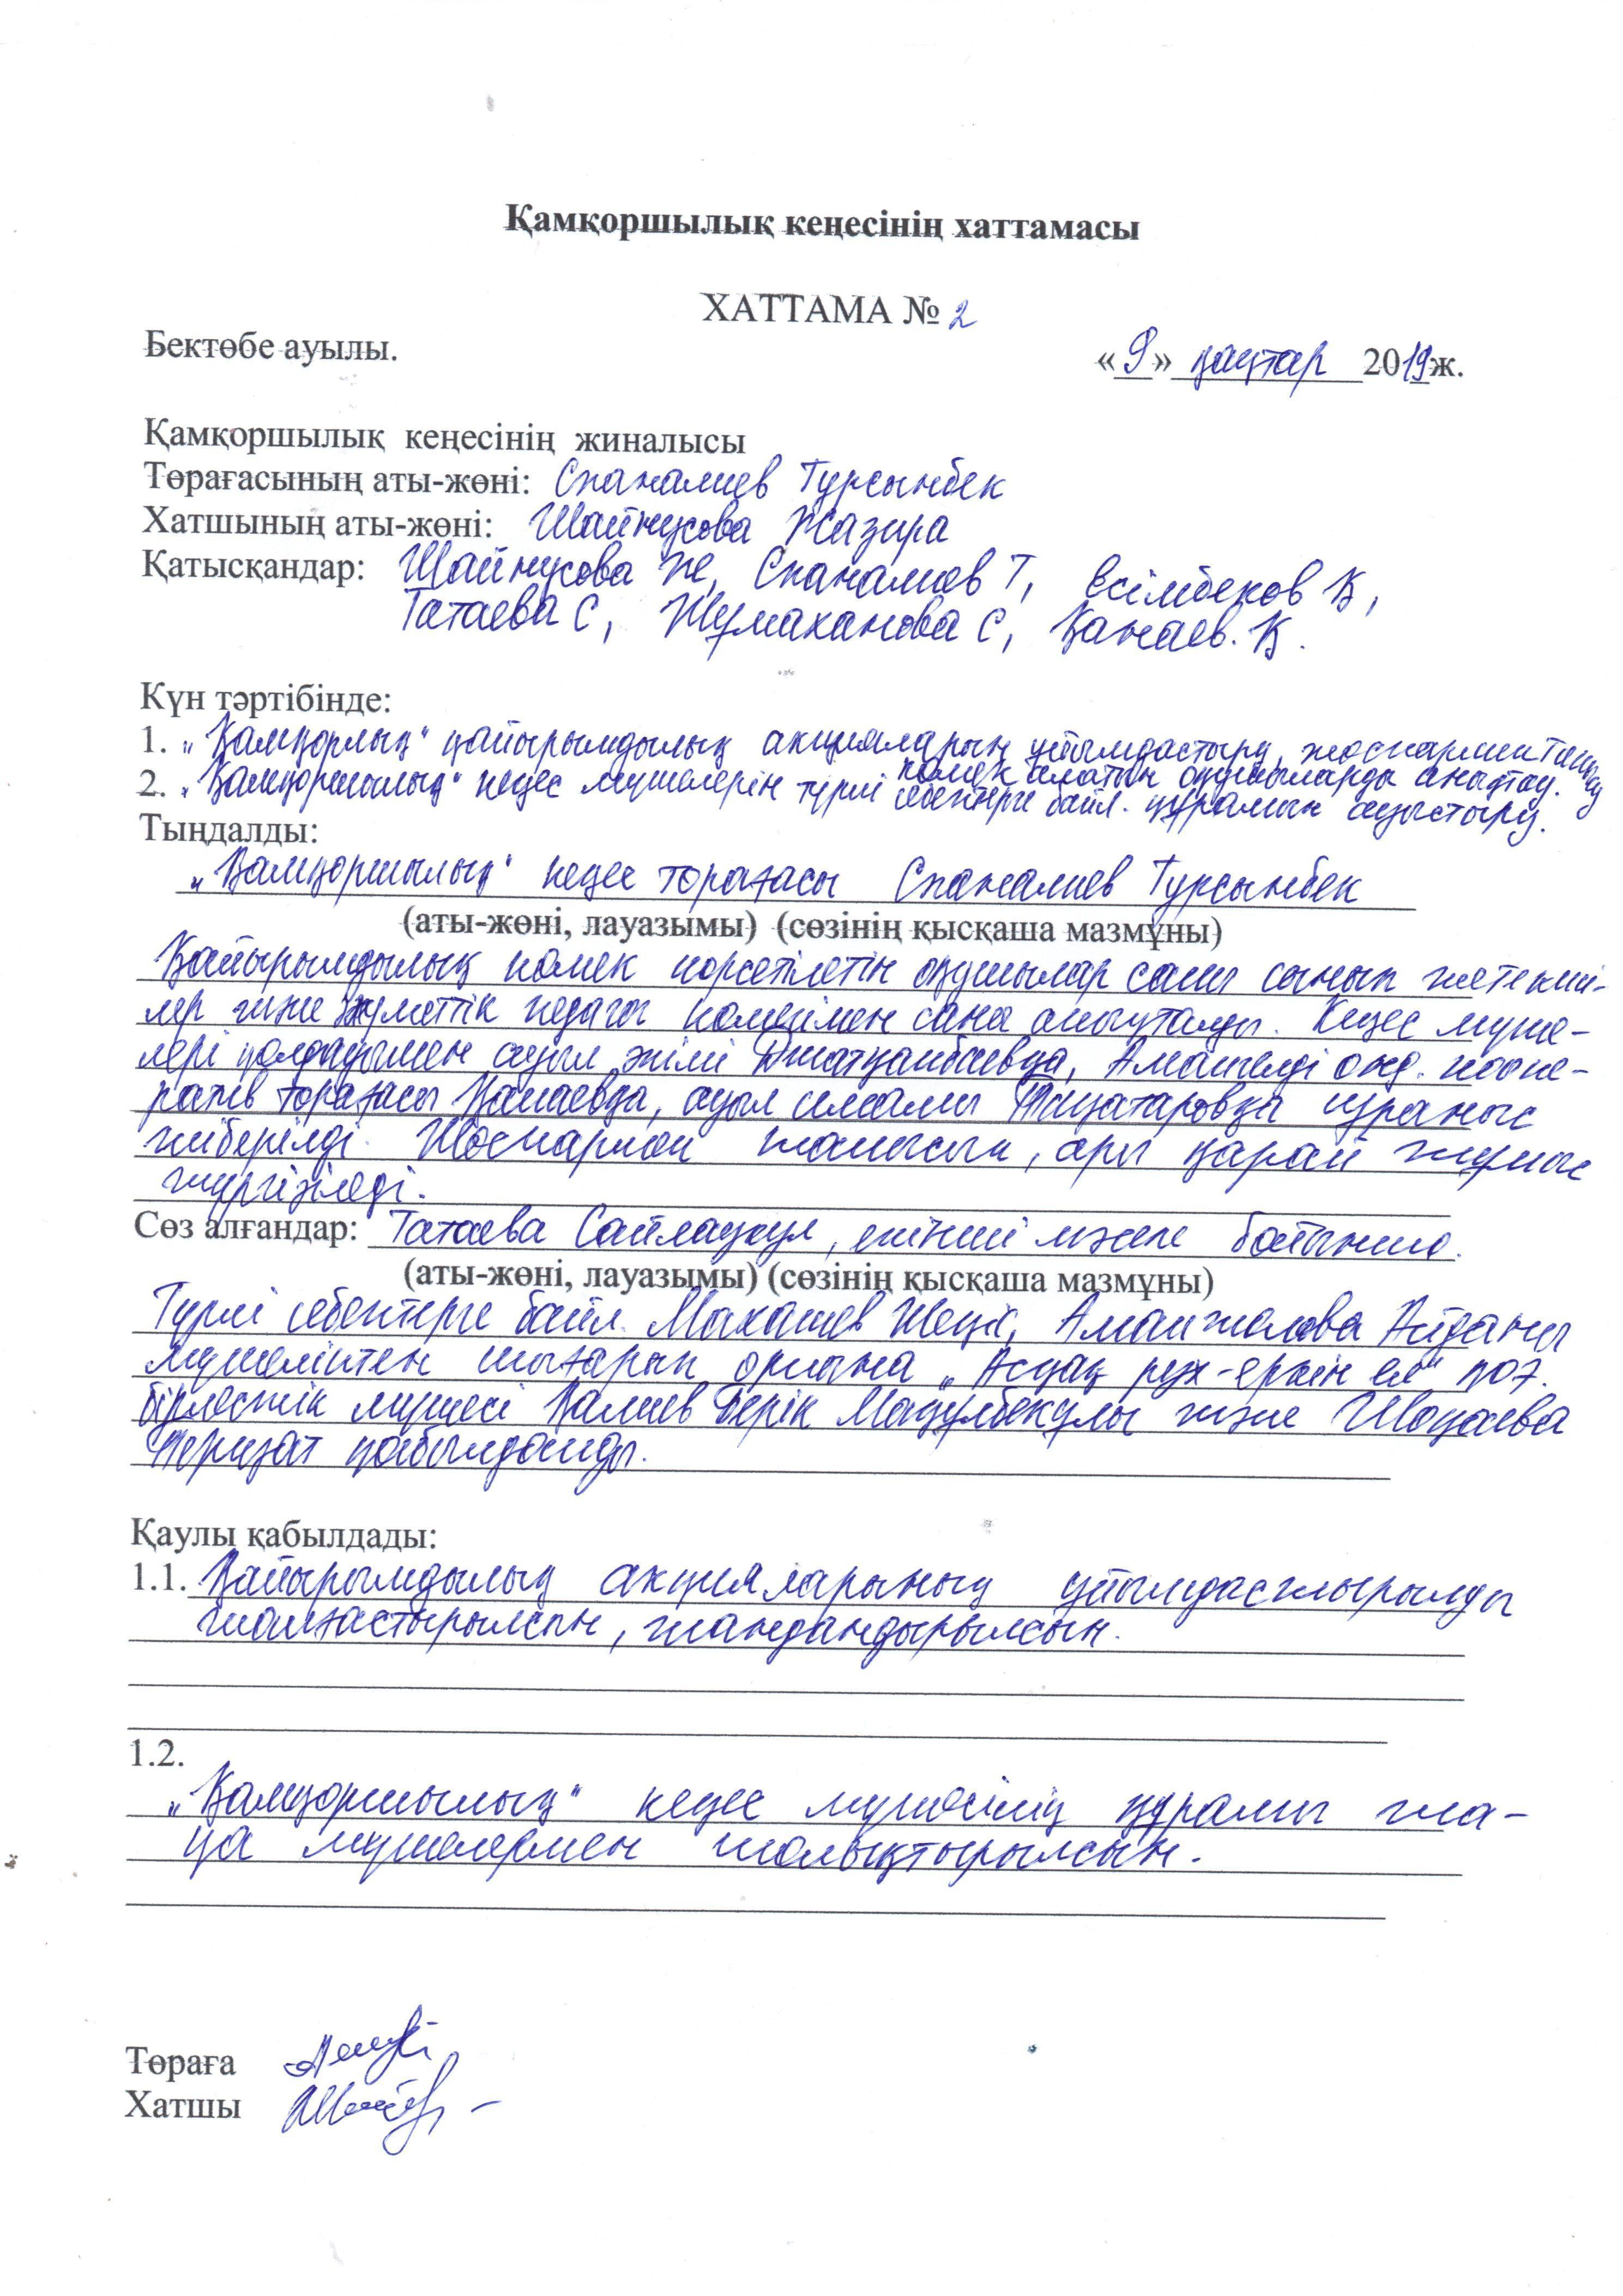 Қамқоршылық кеңесінің хаттамасы
ХАТТАМА № 2
Бектөбе ауылы.
«9» қаңтар 2019ж.
Қамқоршылық кеңесінің жиналысы
Төрағасының аты-жөні: Спаналиев Турсынбек
Хатшының аты-жөні: Шайнусова Жазира
Қатысқандар: Шайнусова Ж, Спаналиев Т, Есімбеков Қ,
Татаева С, Жумаханова С, Қанаев. Қ.
Күн тәртібінде:
1. „Қамқорлық" қайырымдылық акцияларын ұйымдастыру, жоспармен таныс
көмек алатын оқушыларды анықтау.
2. „Қамқоршылық" кеңес мүшелерін түрлі себептерге байл. құрамын ауыстыру.
Тыңдалды:
„Қамқоршылық" кеңес төрағасы Спаналиев Турсынбек
(аты-жөні, лауазымы) (сөзінің қысқаша мазмұны)
Қайырымдылық көмек көрсетілетін оқушылар саны сынып жетекші-
лер және әлуметтік педагог көмегімен саны анықталды. Кеңес мүше-
лері қолдауымен ауыл әкімі Амангелді коопе-
ратив төрағасы Қанаевқа, ауыл имамы ұсыныс
жіберілді. Жоспармен танысып, әрі қарай жұмыс
жүргізіледі.
Сөз алғандар: Татаева Сайлаукул, екінші мәселе бойынша.
(аты-жөні, лауазымы) (сөзінің қысқаша мазмұны)
Түрлі себептерге байл. Махашев Жеңіс, Аманжолова Айданы
мүшеліктен шығарып орнына „Асқақ рух-еркін ел" қоғ.
бірлестік мүшесі Қалиев Берік Мақулбекұлы және Шоқаева
қабылданды.
Қаулы қабылдады:
1.1. Қайырымдылық акцияларының ұйымдастырылуы
жалғастырылсын, жандандырылсын.
1.2.
„Қамқоршылық" кеңес мүшесінің құрамы жа-
ңа мүшелермен толықтырылсын.
Төраға
Хатшы